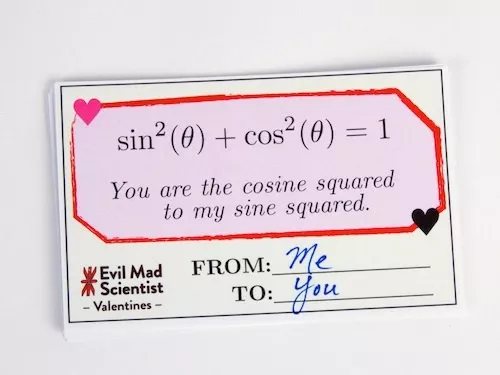 sin²(θ) + cos²(θ) = 1
You are the cosine squared
to my sine squared.
Evil Mad
Scientist
– Valentines –
FROM: Me
TO: You